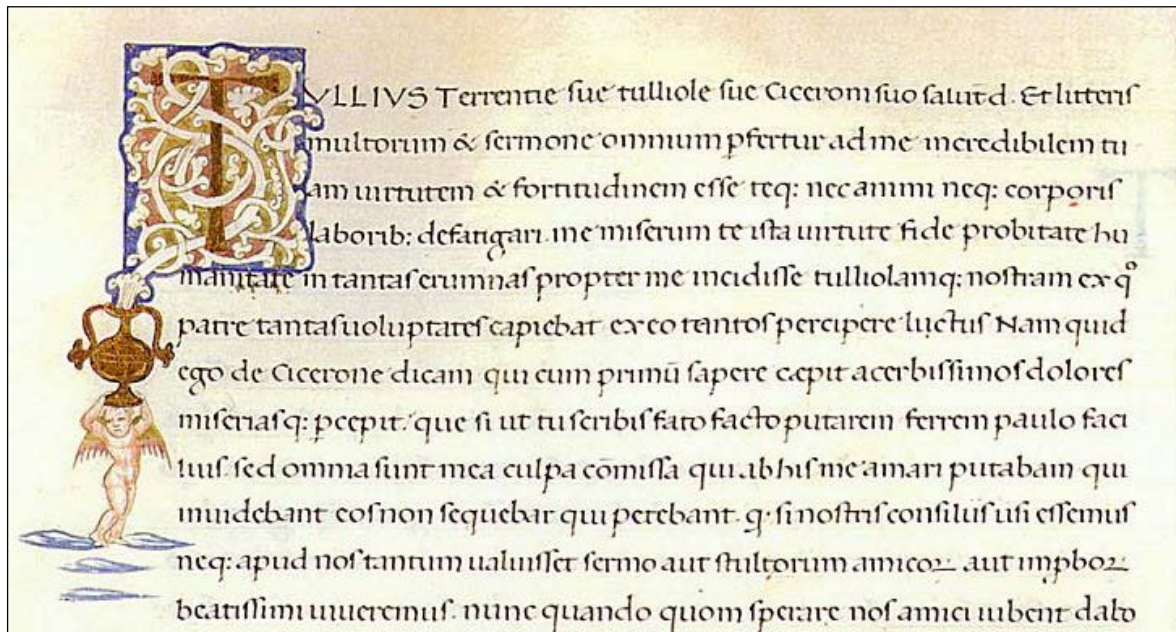 TVLLIVS Terrentie sue tulliole sue Ciceroni suo salut̄ d. Et litteris
multorum & sermone omnium ꝑfertur ad me incredibilem tu
am uirtutem & fortitudinem esse teq: nec animi neq: corporis
laborib: defatigari. me miserum te ista uirtute fide probitate hu
manitate in tantas erumnas propter me incidisse tulliolamq: nostram ex qͦ
patre tantas uoluptates capiebat ex eo tantos percipere luctus Nam quid
ego de Cicerone dicam qui cum primū sapere cæpit acerbissimos dolores
miseriasq: ꝑcepit. que si ut tu scribis fato facto putarem ferrem paulo faci
lius. sed omnia sunt mea culpa cōmissa qui ab his me amari putabam qui
inuidebant eos non sequebar qui petebant. q. si nostris consiliis usi essemus
neq: apud nos tantum ualuisset sermo aut stultorum amicoꝝ aut impboꝝ
beatissimi uiueremus. nunc quando quom sperare nos amici iubent dabo